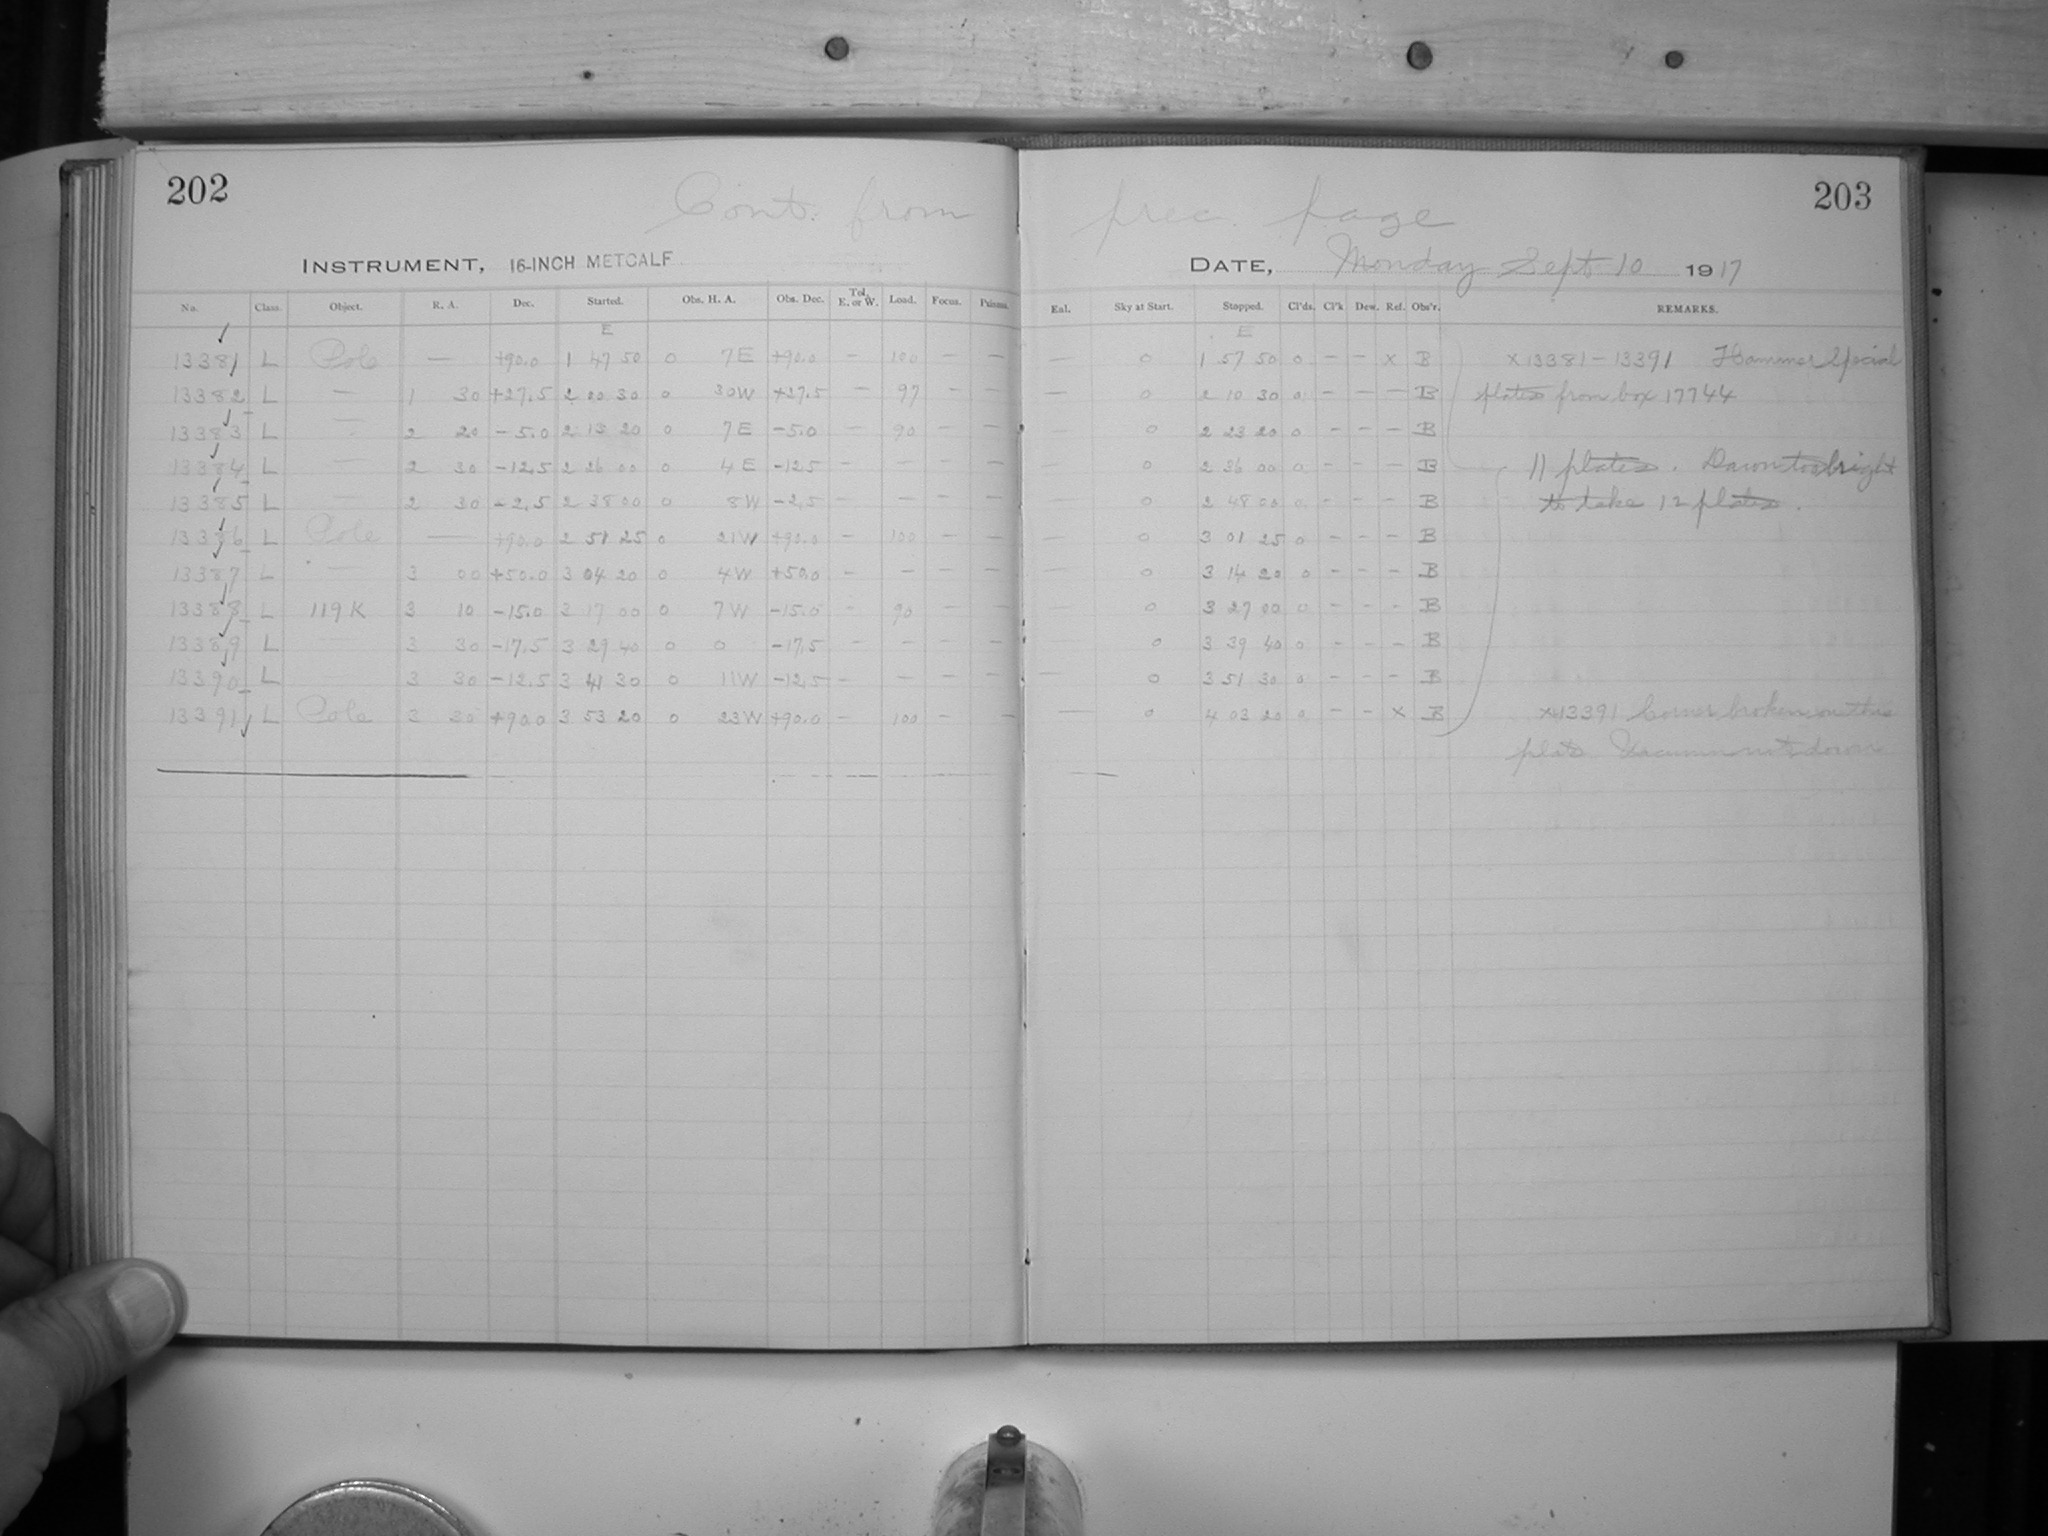 202
203
Cont. from prec. page
INSTRUMENT, 16-INCH METCALF
DATE, Monday Sept 10 1917
No. Class. Object. R. A. Dec. Started. Obs. H. A. Obs. Dec. Tel. E. or W. Load. Focus. Prisms. Eal. Sky at Start. Stopped. Cl'ds. Cl'k Dew. Ref. Obs'r. REMARKS.
E E
13381 L Pole — +90.0 1 47 50 0 7E +90.0 — 100 — — — 0 1 57 50 0 — — x B x 13381 – 13391 Hammer Special
13382 L — 1 30 +27.5 2 00 30 0 30W +27.5 — 97 — — — 0 2 10 30 0 — — — B plates from box 17744
13383 L — 2 20 –5.0 2 13 20 0 7E –5.0 — 90 — — — 0 2 23 20 0 — — — B
13384 L — 2 30 –12.5 2 26 00 0 4E –12.5 — — — — — 0 2 36 00 0 — — — B 11 plates. Dawn too bright
13385 L — 2 30 –2.5 2 38 00 0 8W –2.5 — — — — — 0 2 48 00 0 — — — B to take 12 plates.
13386 L Pole — +90.0 2 51 25 0 21W +90.0 — 100 — — — 0 3 01 25 0 — — — B
13387 L — 3 00 +50.0 3 04 20 0 4W +50.0 — — — — — 0 3 14 20 0 — — — B
13388 L 119K 3 10 –15.0 3 17 00 0 7W –15.0 — 90 — — — 0 3 27 00 0 — — — B
13389 L — 3 30 –17.5 3 29 40 0 0 –17.5 — — — — — 0 3 39 40 0 — — — B
13390 L — 3 30 –12.5 3 41 30 0 11W –12.5 — — — — — 0 3 51 30 0 — — — B
13391 L Pole 3 30 +90.0 3 53 20 0 23W +90.0 — 100 — — — 0 4 03 20 0 — — x B x 13391 Corner broken on this
plate Vacuum not down